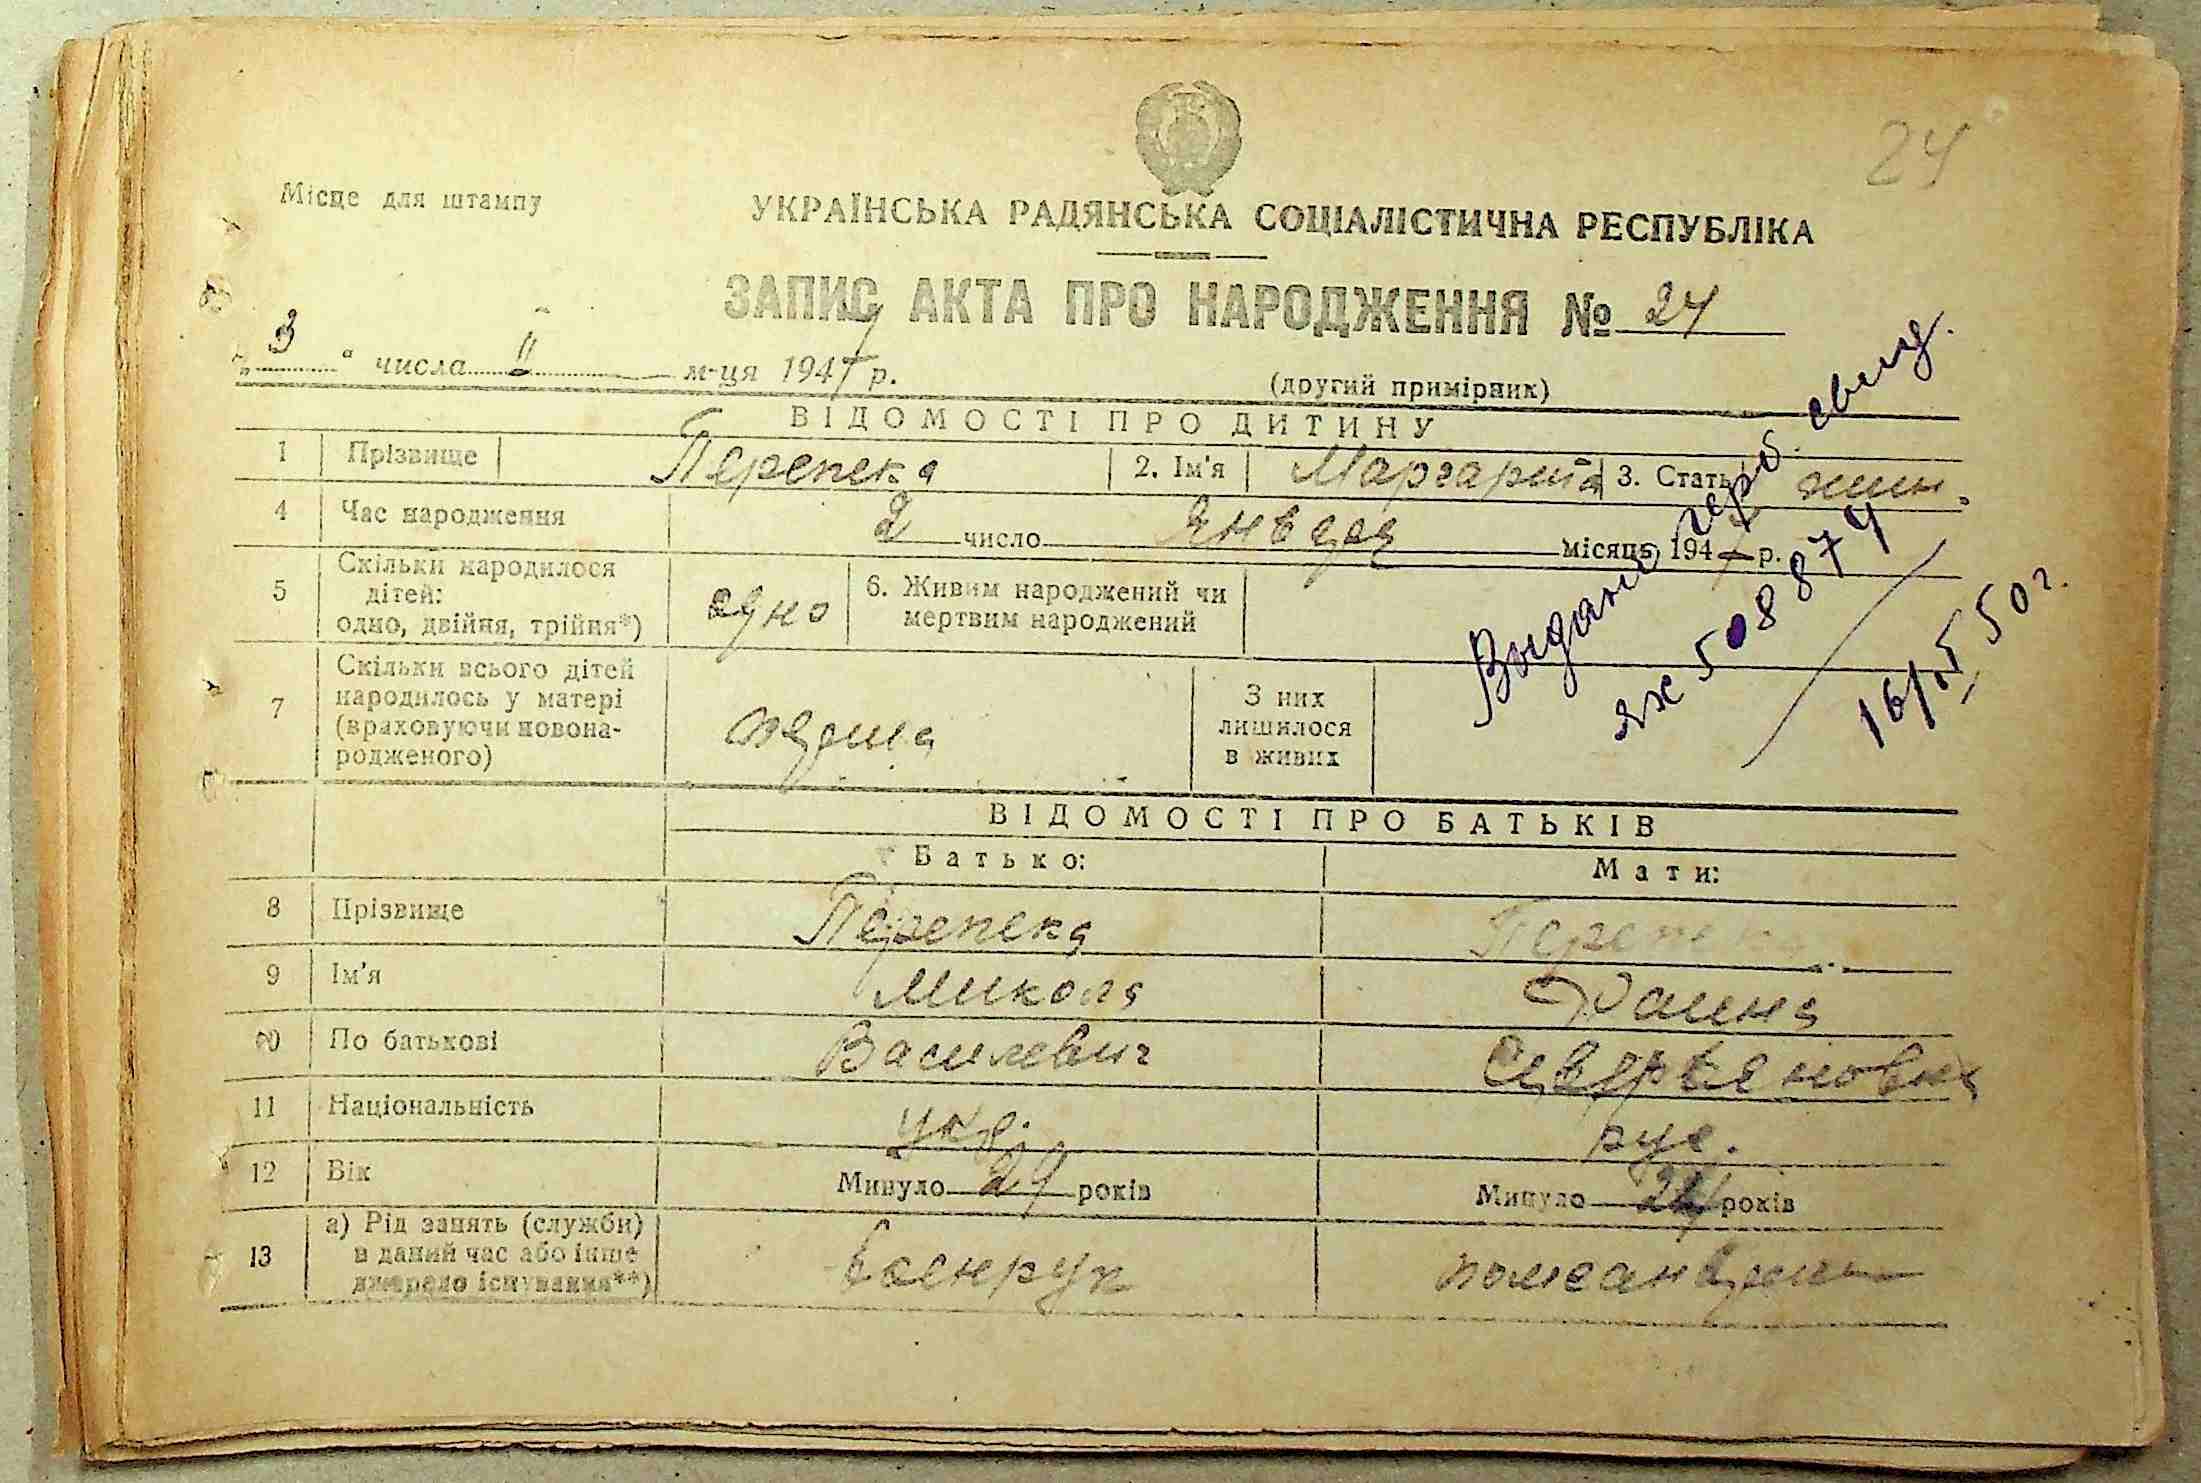 24
Місце для штампу
УКРАЇНСЬКА РАДЯНСЬКА СОЦІАЛІСТИЧНА РЕСПУБЛІКА
ЗАПИС АКТА ПРО НАРОДЖЕННЯ № 24
„3“ числа II м-ця 1947 р.
(другий примірник)
ВІДОМОСТІ ПРО ДИТИНУ
1 Прізвище Перепека 2. Ім'я Маргарита 3. Стать жин.
4 Час народження 2 число Января місяць 1947 р.
5 Скільки народилося дітей: одно, двійня, трійня*) одно 6. Живим народжений чи мертвим народжений
7 Скільки всього дітей народилось у матері (враховуючи новонародженого) перша З них лишилося в живих
Выдано герб. свид.
яж 508874
16/II 50 г.
ВІДОМОСТІ ПРО БАТЬКІВ
Батько: Мати:
8 Прізвище Перепека Перепека
9 Ім'я Микола Фаина
По батькові Василевич Северьяновна
11 Національність укр. рус.
12 Вік Минуло 29 років Минуло 24 років
13 а) Рід занять (служби) в даний час або інше джерело існування**)